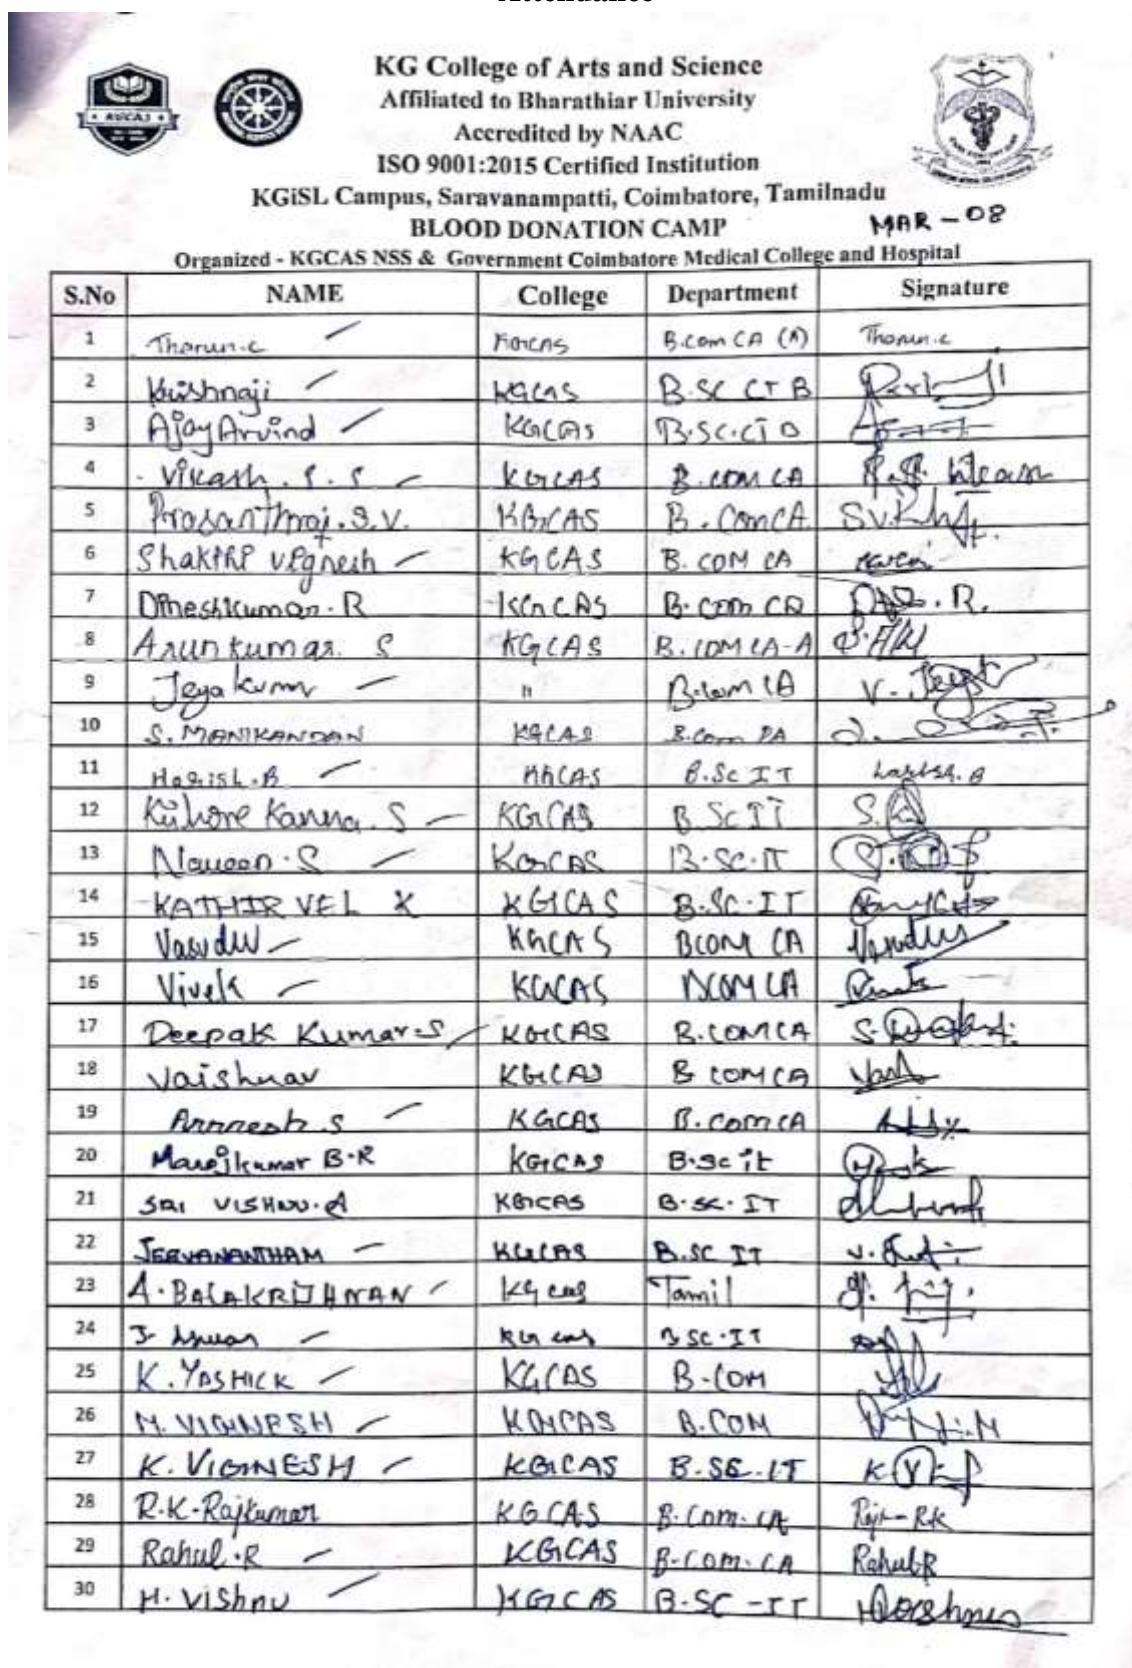 Attendance
KGCAS
KG College of Arts and Science
Affiliated to Bharathiar University
Accredited by NAAC
ISO 9001:2015 Certified Institution
KGiSL Campus, Saravanampatti, Coimbatore, Tamilnadu
BLOOD DONATION CAMP
MAR - 08
Organized - KGCAS NSS & Government Coimbatore Medical College and Hospital
S.No NAME College Department Signature
1 Tharun.c KGCAS B.com CA (A) Tharun.c
2 Krishnaji KGCAS B.SC CT B
3 Ajay Arvind KGCAS B.SC.CT D
4 Vikash. S. S KGCAS B.COM CA
5 Prasanthraj. S.V. KGCAS B.ComCA
6 Shakthi Vignesh KGCAS B.COM CA
7 Dineshkumar. R KGCAS B.COM CA
8 Arunkumar. S KGCAS B.COM CA-A
9 Jeyakumr " B.com CA
10 S. MANIKANDAN KGCAS B.Com PA
11 Harish.B KGCAS B.Sc IT Harish.B
12 Kishore Kanna. S KGCAS B.Sc IT
13 Naveen.S KGCAS B.SC.IT
14 KATHIRVEL K KGCAS B.SC.IT
15 Vasudev KGCAS BCOM CA
16 Vivek KGCAS BCOM CA
17 Deepak Kumar.S KGCAS B.COMCA
18 Vaishnav KGCAS B COMCA
19 KGCAS B.COMCA
20 Manojkumar B.R KGCAS B.Sc it
21 SRI VISHNU.A KGCAS B.SC.IT
22 JEEVANANTHAM KGCAS B.SC IT
23 A.BALAKRISHNAN KG cas Tamil
24 KG cas B SC.IT
25 K.YASHICK KGCAS B.COM
26 M.VIGNESH KGCAS B.COM
27 K.VIGNESH KGCAS B.SC.IT
28 R.K.Rajkumar KGCAS B.Com.CA
29 Rahul.R KGCAS B.COM.CA Rahul.R
30 H.Vishnu KGCAS B.SC-IT